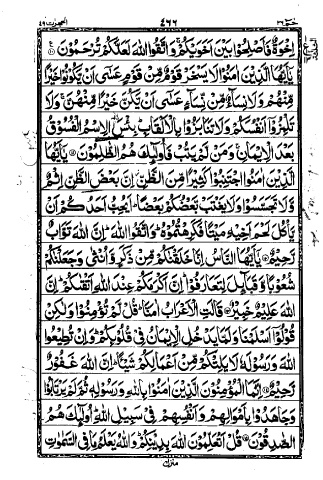 حٰمٓ ٢٦ ٤٦٦ الحجرٰت ٤٩
اِخْوَةٌ فَاَصْلِحُوْا بَيْنَ اَخَوَيْكُمْ وَاتَّقُوا اللّٰهَ لَعَلَّكُمْ تُرْحَمُوْنَ
يٰۤاَيُّهَا الَّذِيْنَ اٰمَنُوْا لَا يَسْخَرْ قَوْمٌ مِّنْ قَوْمٍ عَسٰۤى اَنْ يَّكُوْنُوْا خَيْرًا
مِّنْهُمْ وَلَا نِسَآءٌ مِّنْ نِّسَآءٍ عَسٰۤى اَنْ يَّكُنَّ خَيْرًا مِّنْهُنَّ وَلَا
تَلْمِزُوْۤا اَنْفُسَكُمْ وَلَا تَنَابَزُوْا بِالْاَلْقَابِ بِئْسَ الِاسْمُ الْفُسُوْقُ
بَعْدَ الْاِيْمَانِ وَمَنْ لَّمْ يَتُبْ فَاُولٰٓئِكَ هُمُ الظّٰلِمُوْنَ يٰۤاَيُّهَا
الَّذِيْنَ اٰمَنُوا اجْتَنِبُوْا كَثِيْرًا مِّنَ الظَّنِّ اِنَّ بَعْضَ الظَّنِّ اِثْمٌ
وَّلَا تَجَسَّسُوْا وَلَا يَغْتَبْ بَّعْضُكُمْ بَعْضًا اَيُحِبُّ اَحَدُكُمْ اَنْ
يَّاْكُلَ لَحْمَ اَخِيْهِ مَيْتًا فَكَرِهْتُمُوْهُ وَاتَّقُوا اللّٰهَ اِنَّ اللّٰهَ تَوَّابٌ
رَّحِيْمٌ يٰۤاَيُّهَا النَّاسُ اِنَّا خَلَقْنٰكُمْ مِّنْ ذَكَرٍ وَّاُنْثٰى وَجَعَلْنٰكُمْ
شُعُوْبًا وَّقَبَآئِلَ لِتَعَارَفُوْا اِنَّ اَكْرَمَكُمْ عِنْدَ اللّٰهِ اَتْقٰىكُمْ اِنَّ
اللّٰهَ عَلِيْمٌ خَبِيْرٌ قَالَتِ الْاَعْرَابُ اٰمَنَّا قُلْ لَّمْ تُؤْمِنُوْا وَلٰكِنْ
قُوْلُوْۤا اَسْلَمْنَا وَلَمَّا يَدْخُلِ الْاِيْمَانُ فِيْ قُلُوْبِكُمْ وَاِنْ تُطِيْعُوا
اللّٰهَ وَرَسُوْلَهٗ لَا يَلِتْكُمْ مِّنْ اَعْمَالِكُمْ شَيْـًٔا اِنَّ اللّٰهَ غَفُوْرٌ
رَّحِيْمٌ اِنَّمَا الْمُؤْمِنُوْنَ الَّذِيْنَ اٰمَنُوْا بِاللّٰهِ وَرَسُوْلِهٖ ثُمَّ لَمْ يَرْتَابُوْا
وَجَاهَدُوْا بِاَمْوَالِهِمْ وَاَنْفُسِهِمْ فِيْ سَبِيْلِ اللّٰهِ اُولٰٓئِكَ هُمُ
الصّٰدِقُوْنَ قُلْ اَتُعَلِّمُوْنَ اللّٰهَ بِدِيْنِكُمْ وَاللّٰهُ يَعْلَمُ مَا فِي السَّمٰوٰتِ
منزل